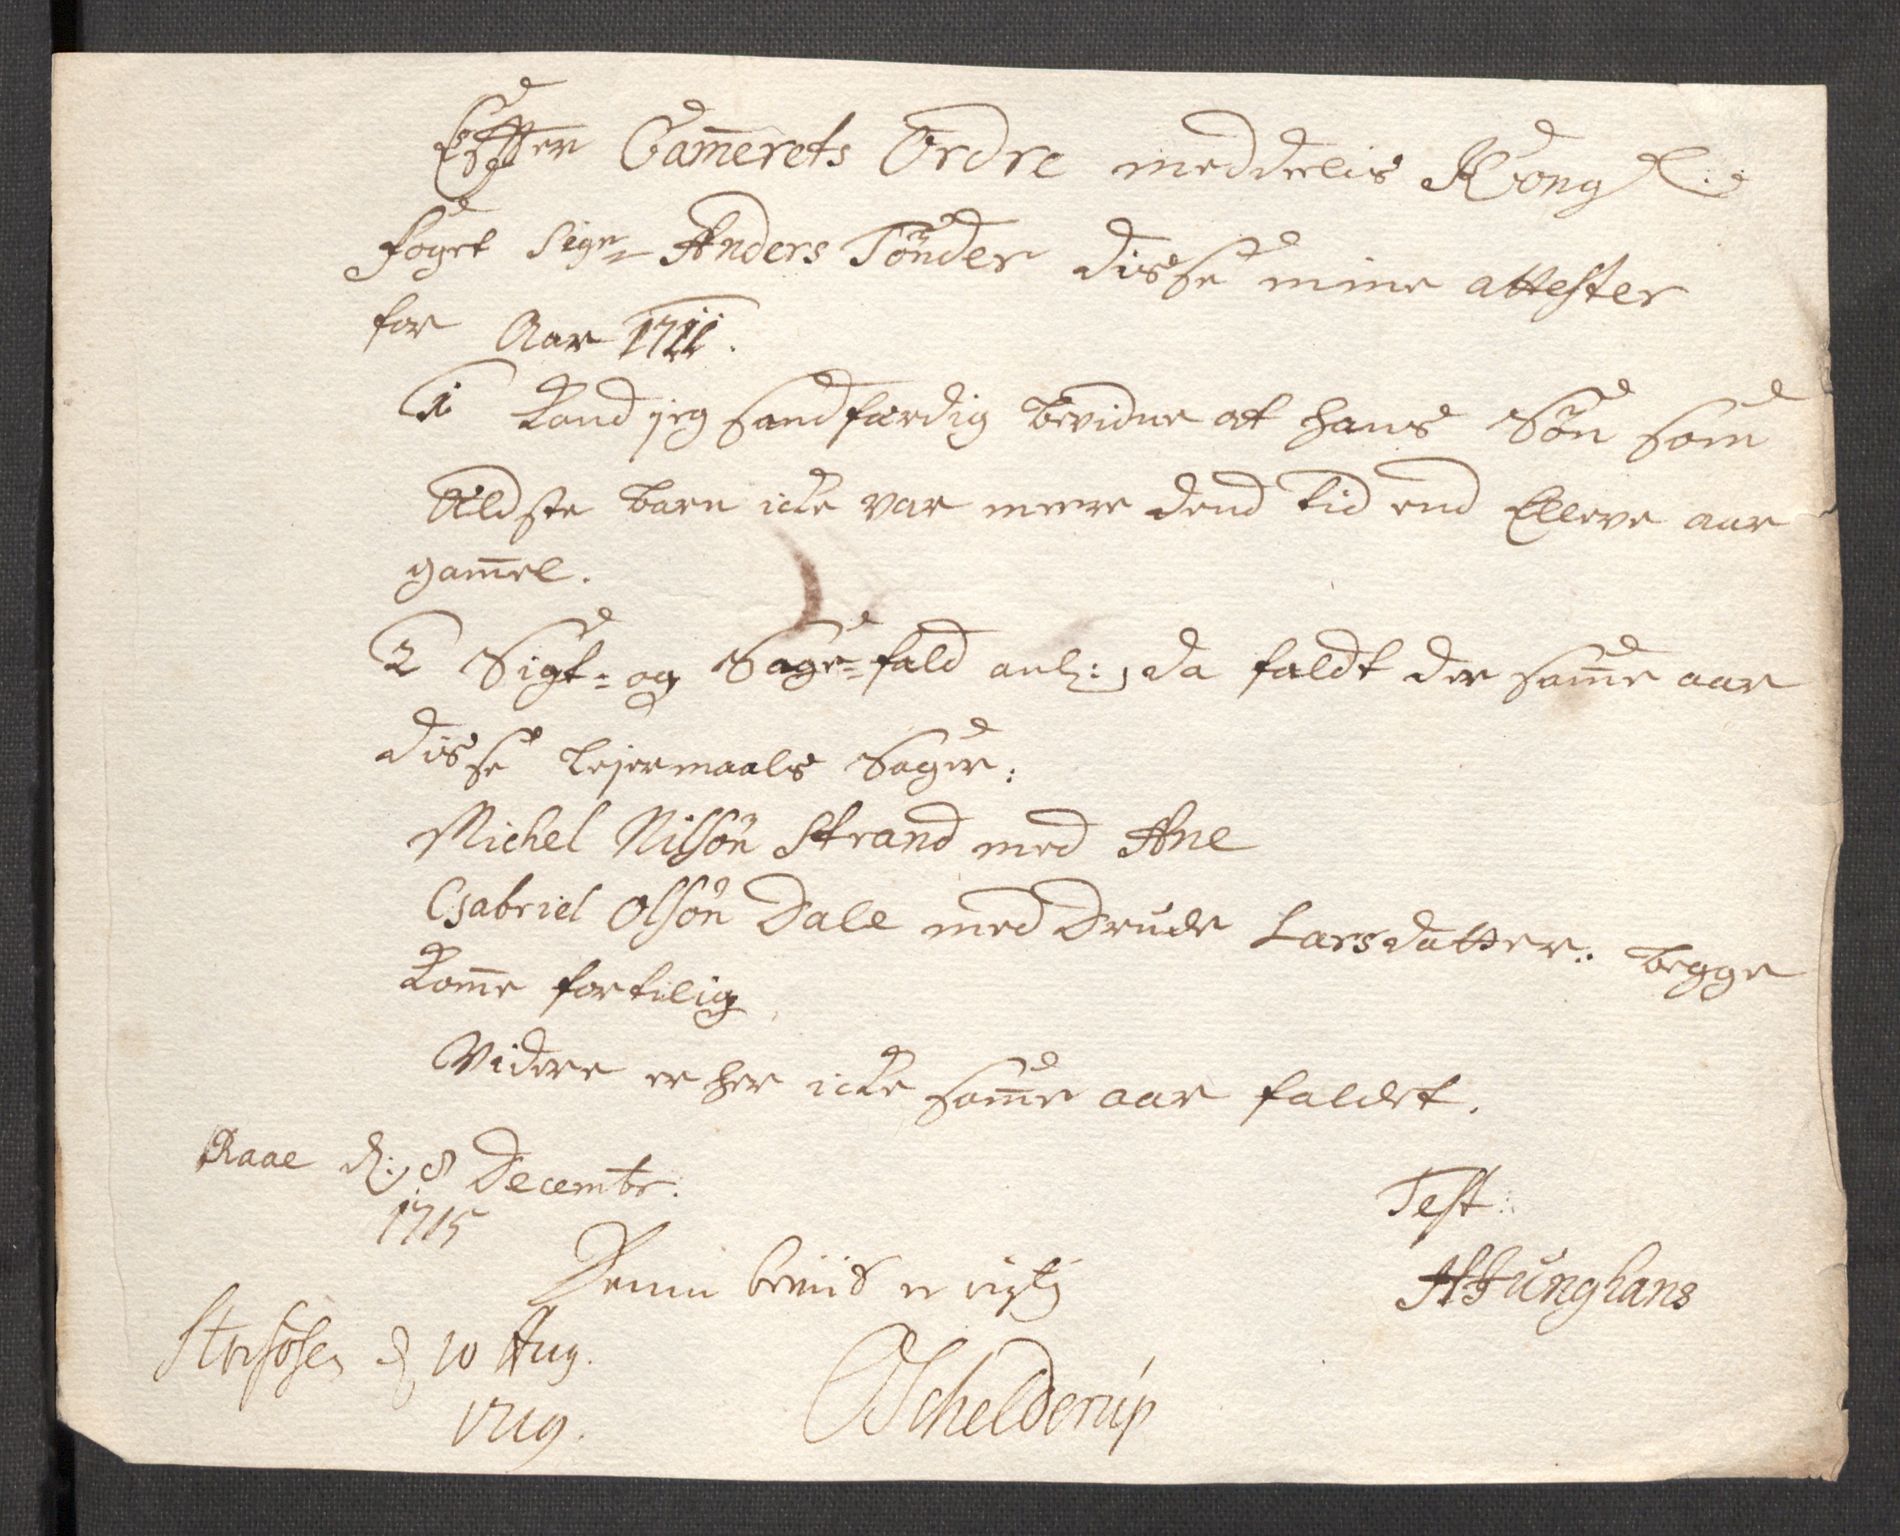 Effter Cam̄erets Ordre meddelis Kongl:
foget Sigr Anders Tönder disse mine attester
for Aar 1711.
1 Kand jeg sandfærdig bevidne at hans Sön som
Ældste barn icke var meere dend tid end Elleve aar
gam̄el.
2 Sigt- og Sage-fald anl:, da faldt der sam̄e aar
disse lejermaals Sager:
Michel Nilsön Strand med Ane
Gabriel Olsön Dale med Drude Larsdatter: begge
kom̄e fortilig
Videre er her icke sam̄e aar faldet.
Raae d: 8 Decembr:
1715
Test:
HJunghans
Denne beviis er rigtig
d 10 Aug.
1719.
Schelderup